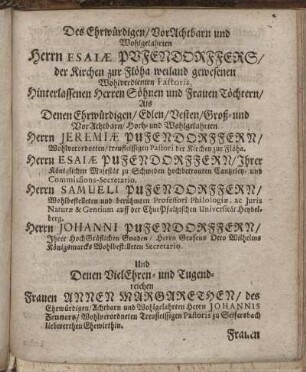 Des Ehrwürdigen/ VorAchtbarn und
Wohlgelahrten
Herrn ESAIÆ PUFENDORFFERS/
der Kirchen zur Flöha weiland gewesenen
Wohlverdienten Pastoris,
Hinterlassenen Herren Söhnen und Frauen Töchtern/
Als
Denen Ehrwürdigen/ Edlen/ Vesten/ Groß- und
VorAchtbarn/ Hoch- und Wohlgelahrten
Herrn JEREMIÆ PUFENDORFFERN/
Wohlverordneten/ treufleissigen Pastori der Kirchen zur Flöha.
Herrn ESAIÆ PUFENDORFFERN/ Ihrer
Königlichen Majestät zu Schweden hochbetrauten Cantzeley- und
Commissions-Secretario.
Herrn SAMUELI PUFENDORFFERN/
Wohlbestelleten und berühmten Professori Philologiæ, ac Juris
Naturæ & Gentium auff der ChurPfältzischen Universität Heydel-
berg.
Herrn JOHANNI PUFENDORFFERN/
Ihrer HochGräflichen Gnaden/ Herrn Grafens Otto Wilhelms
Königsmarcks Wohlbestelleten Secretario.
Und
Denen VielEhren- und Tugend-
reichen
Frauen ANNEN MARGARETHEN/ des
Ehrwürdigen/ Achtbarn und Wohlgelahrten Herrn JOHANNIS
Fenners/ Wohlverordneten Treufleissigen Pastoris zu Seifersbach
liebwerthen Ehewirthin.
Frauen